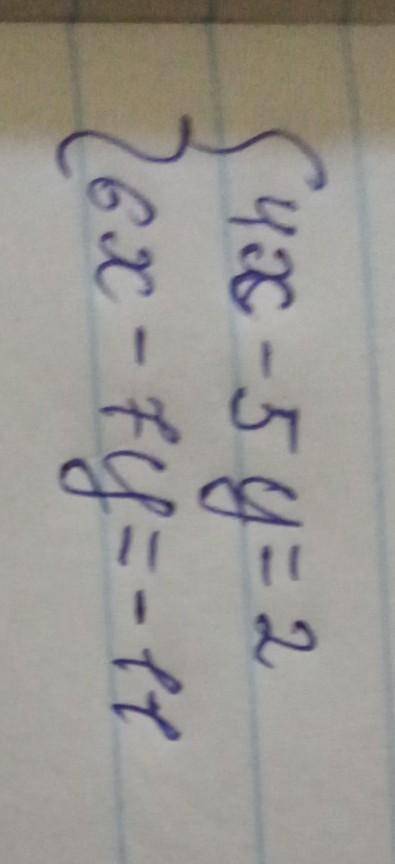 4x - 5y = 2
6x - 7y = -11